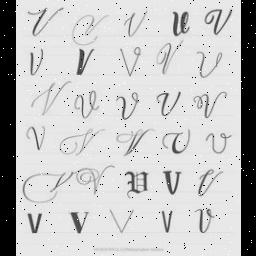 V V V V V
V V V V V
V V V V V
V V V V V
V V V V V
V V V V V